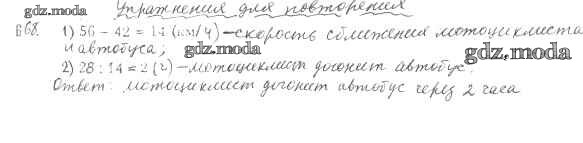 gdz.moda
Упражнения для повторения
668. 1) 56 - 42 = 14 (км/ч) - скорость сближения мотоциклиста
и автобуса;
gdz.moda
gdz.moda
2) 28 : 14 = 2 (ч) - мотоциклист догонит автобус.
Ответ: мотоциклист догонит автобус через 2 часа